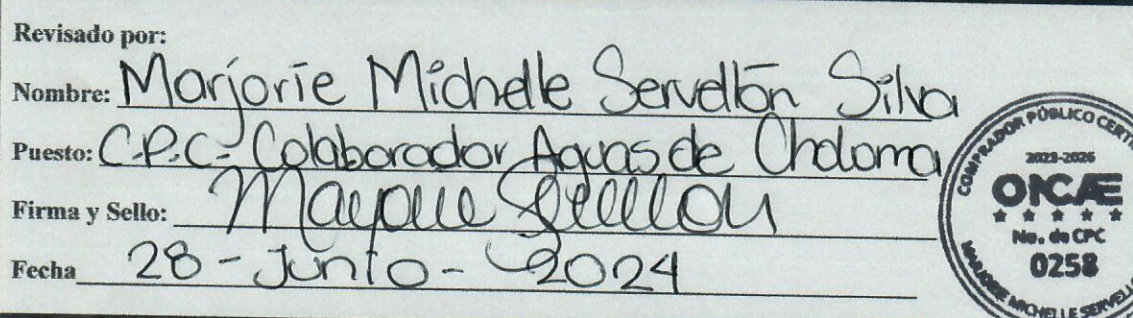 Revisado por:
Nombre: Marjorie Michelle Servellón Silva
Puesto: C.P.C-Colaborador Aguas de Choloma
Firma y Sello:
Fecha 28-Junio-2024
COMPRADOR PÚBLICO CERTI
2023-2026
ONCAE
No. de CPC
0258
MARJORIE MICHELLE SERVELL